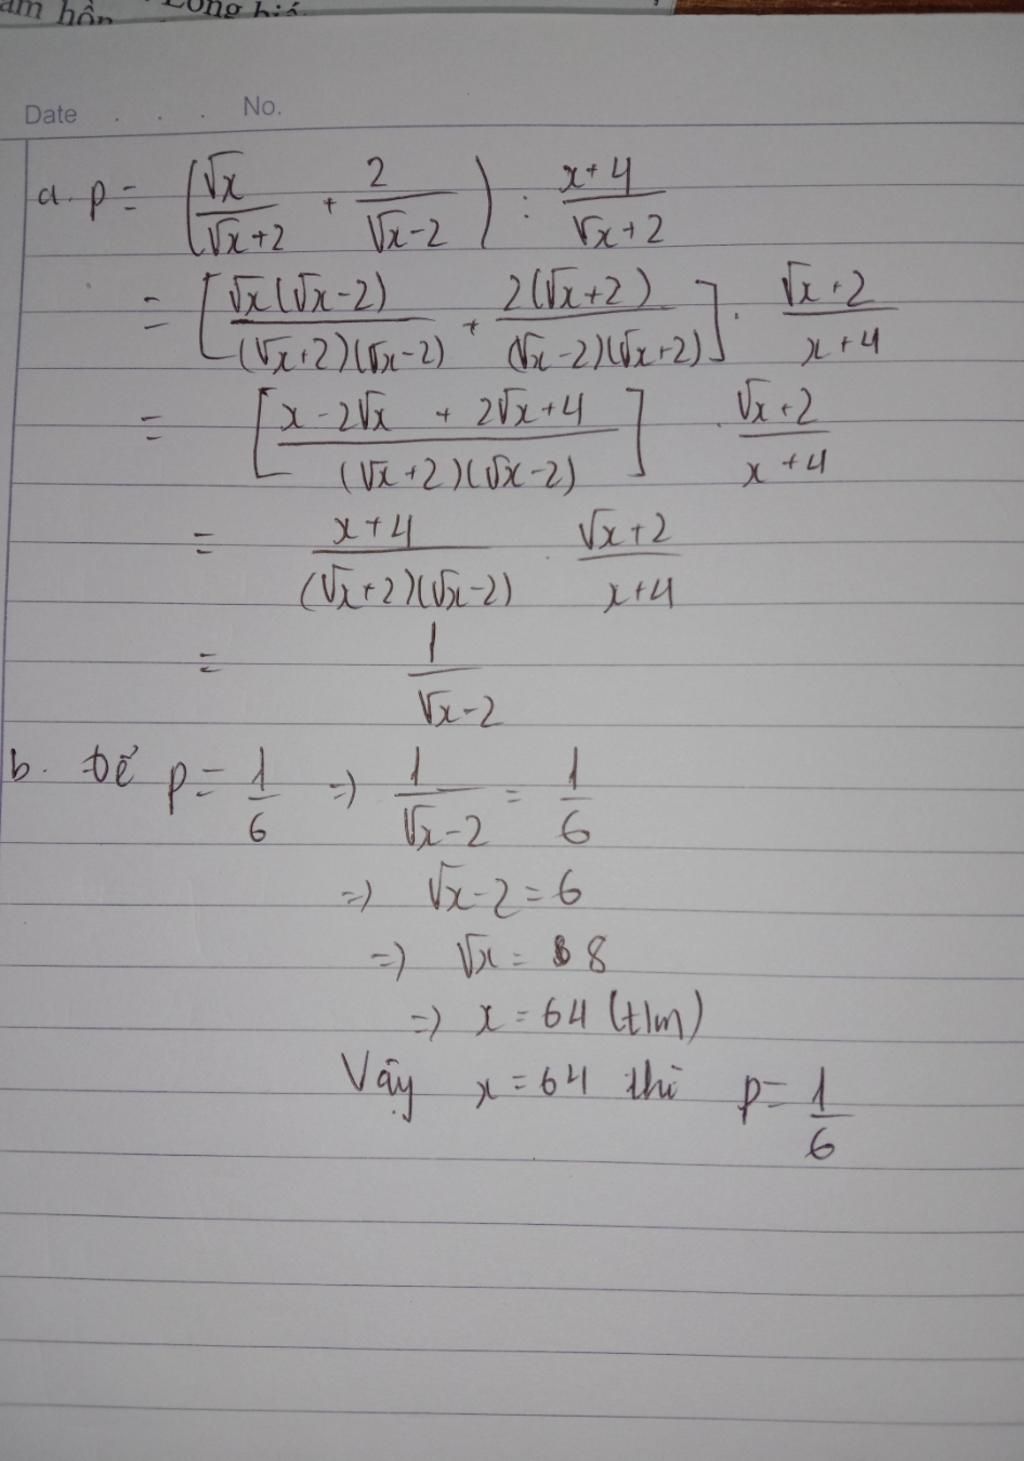 Date . . . No.
a. P = (√x/(√x+2) + 2/(√x-2)) : (x+4)/(√x+2)
= [√x(√x-2)/((√x+2)(√x-2)) + 2(√x+2)/((√x-2)(√x+2))] . (√x+2)/(x+4)
= [(x-2√x + 2√x+4)/((√x+2)(√x-2))] . (√x+2)/(x+4)
= (x+4)/((√x+2)(√x-2)) . (√x+2)/(x+4)
= 1/(√x-2)
b. Để P = 1/6 => 1/(√x-2) = 1/6
=> √x-2 = 6
=> √x = 8
=> x = 64 (t/m)
Vậy x = 64 thì P = 1/6